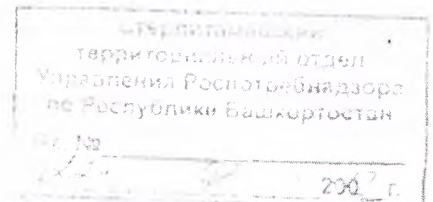 территориальный отдел
Управления Роспотребнадзора
по Республики Башкортостан
Вх. №
200 г.